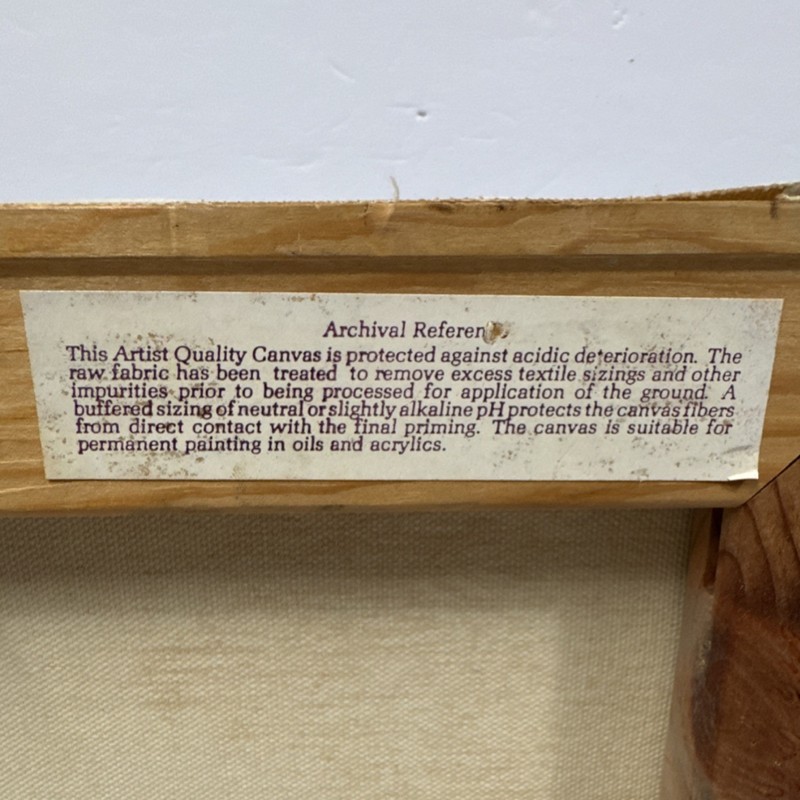 Archival Referen
This Artist Quality Canvas is protected against acidic deterioration. The
raw fabric has been treated to remove excess textile sizings and other
impurities prior to being processed for application of the ground. A
buffered sizing of neutral or slightly alkaline pH protects the canvas fibers
from direct contact with the final priming. The canvas is suitable for
permanent painting in oils and acrylics.